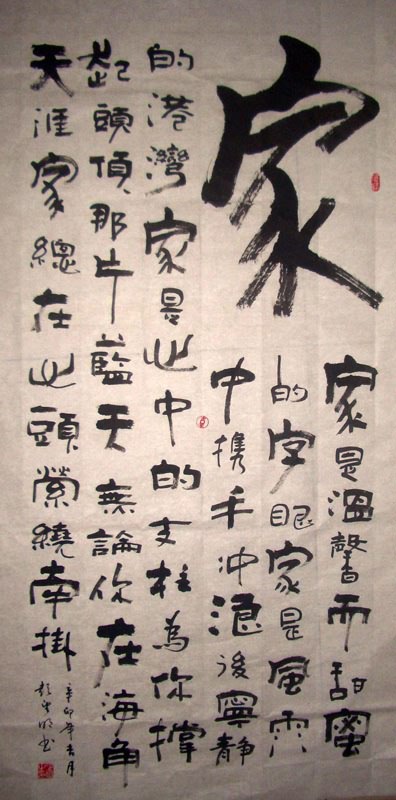 家
家是溫馨而甜蜜
的字眼家是風雨
中携手冲浪後寧靜
的港灣家是心中的支柱為你撐
起頭頂那片藍天無論你在海角
天涯家總在心頭縈繞牽掛
辛卯年吉月
明书